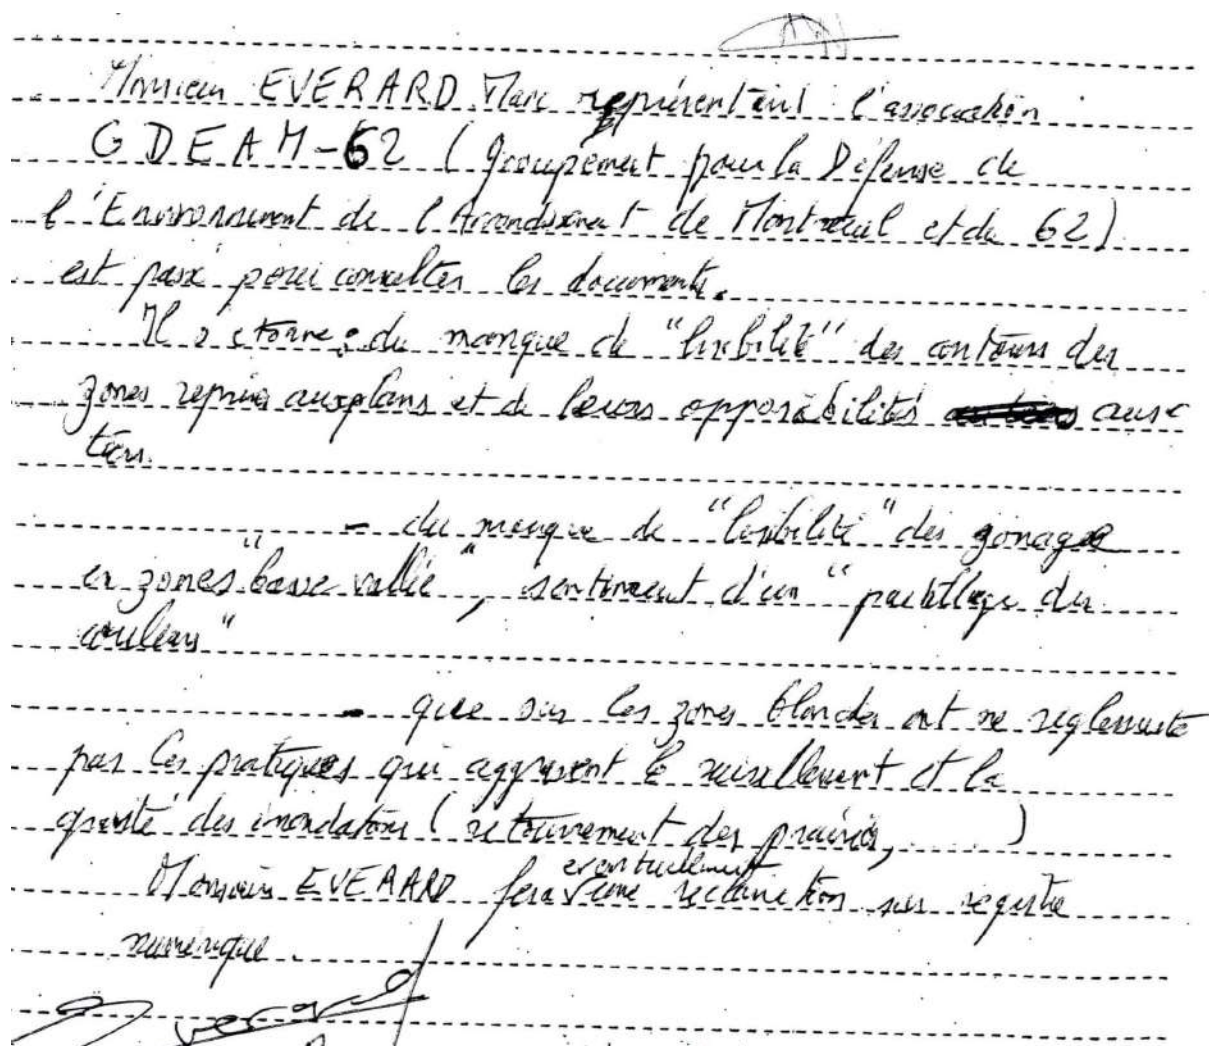 Monsieur EVERARD Marc représentant l'association
GDEAM-62 (Groupement pour la Défense de
l'Environnement de l'Arrondissement de Montreuil et du 62)
est passé pour consulter les documents.
Il s'étonne : du manque de "lisibilité" des contours des
zones repris aux plans et de leurs opposabilités aux
tiers.
- du manque de "lisibilité" des zonages
en zones "basse vallée", sentiment d'un "pastillage des
couleurs"
- que sur les zones blanches ont ne réglemente
pas les pratiques qui aggravent le ruissellement et la
gravité des inondations (retournement des prairies, ....)
Monsieur EVERARD fera éventuellement une réclamation sur registre
numérique.
Everard